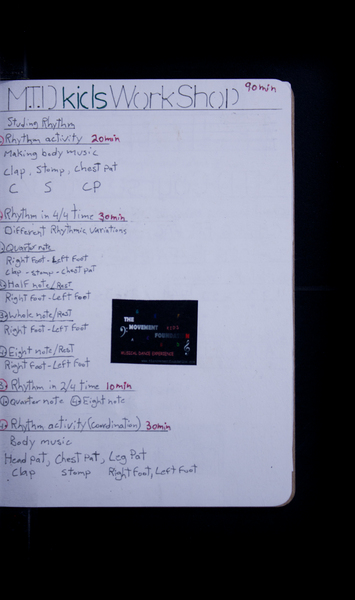 M.T.I.D kids WorkShop 90min
Studing Rhythm
Rhythm activity 20min
Making body music
Clap, Stomp, Chest pat
C S CP
Rhythm in 4/4 time 30min
Different Rhythmic Variations
Quarter note
Right Foot - Left Foot
Clap - Stomp - Chest pat
Half note/Rest
Right Foot - Left Foot
Whole note/Rest
Right Foot - Left Foot
Eight note/Rest
Right Foot - Left Foot
THE
MOVEMENT
MUSICAL DANCE EXPERIENCE
Rhythm in 2/4 time 10min
Quarter note Eight note
Rhythm activity (coordination) 30min
Body music
Head pat, Chest Pat, Leg Pat
Clap Stomp Right Foot, Left Foot